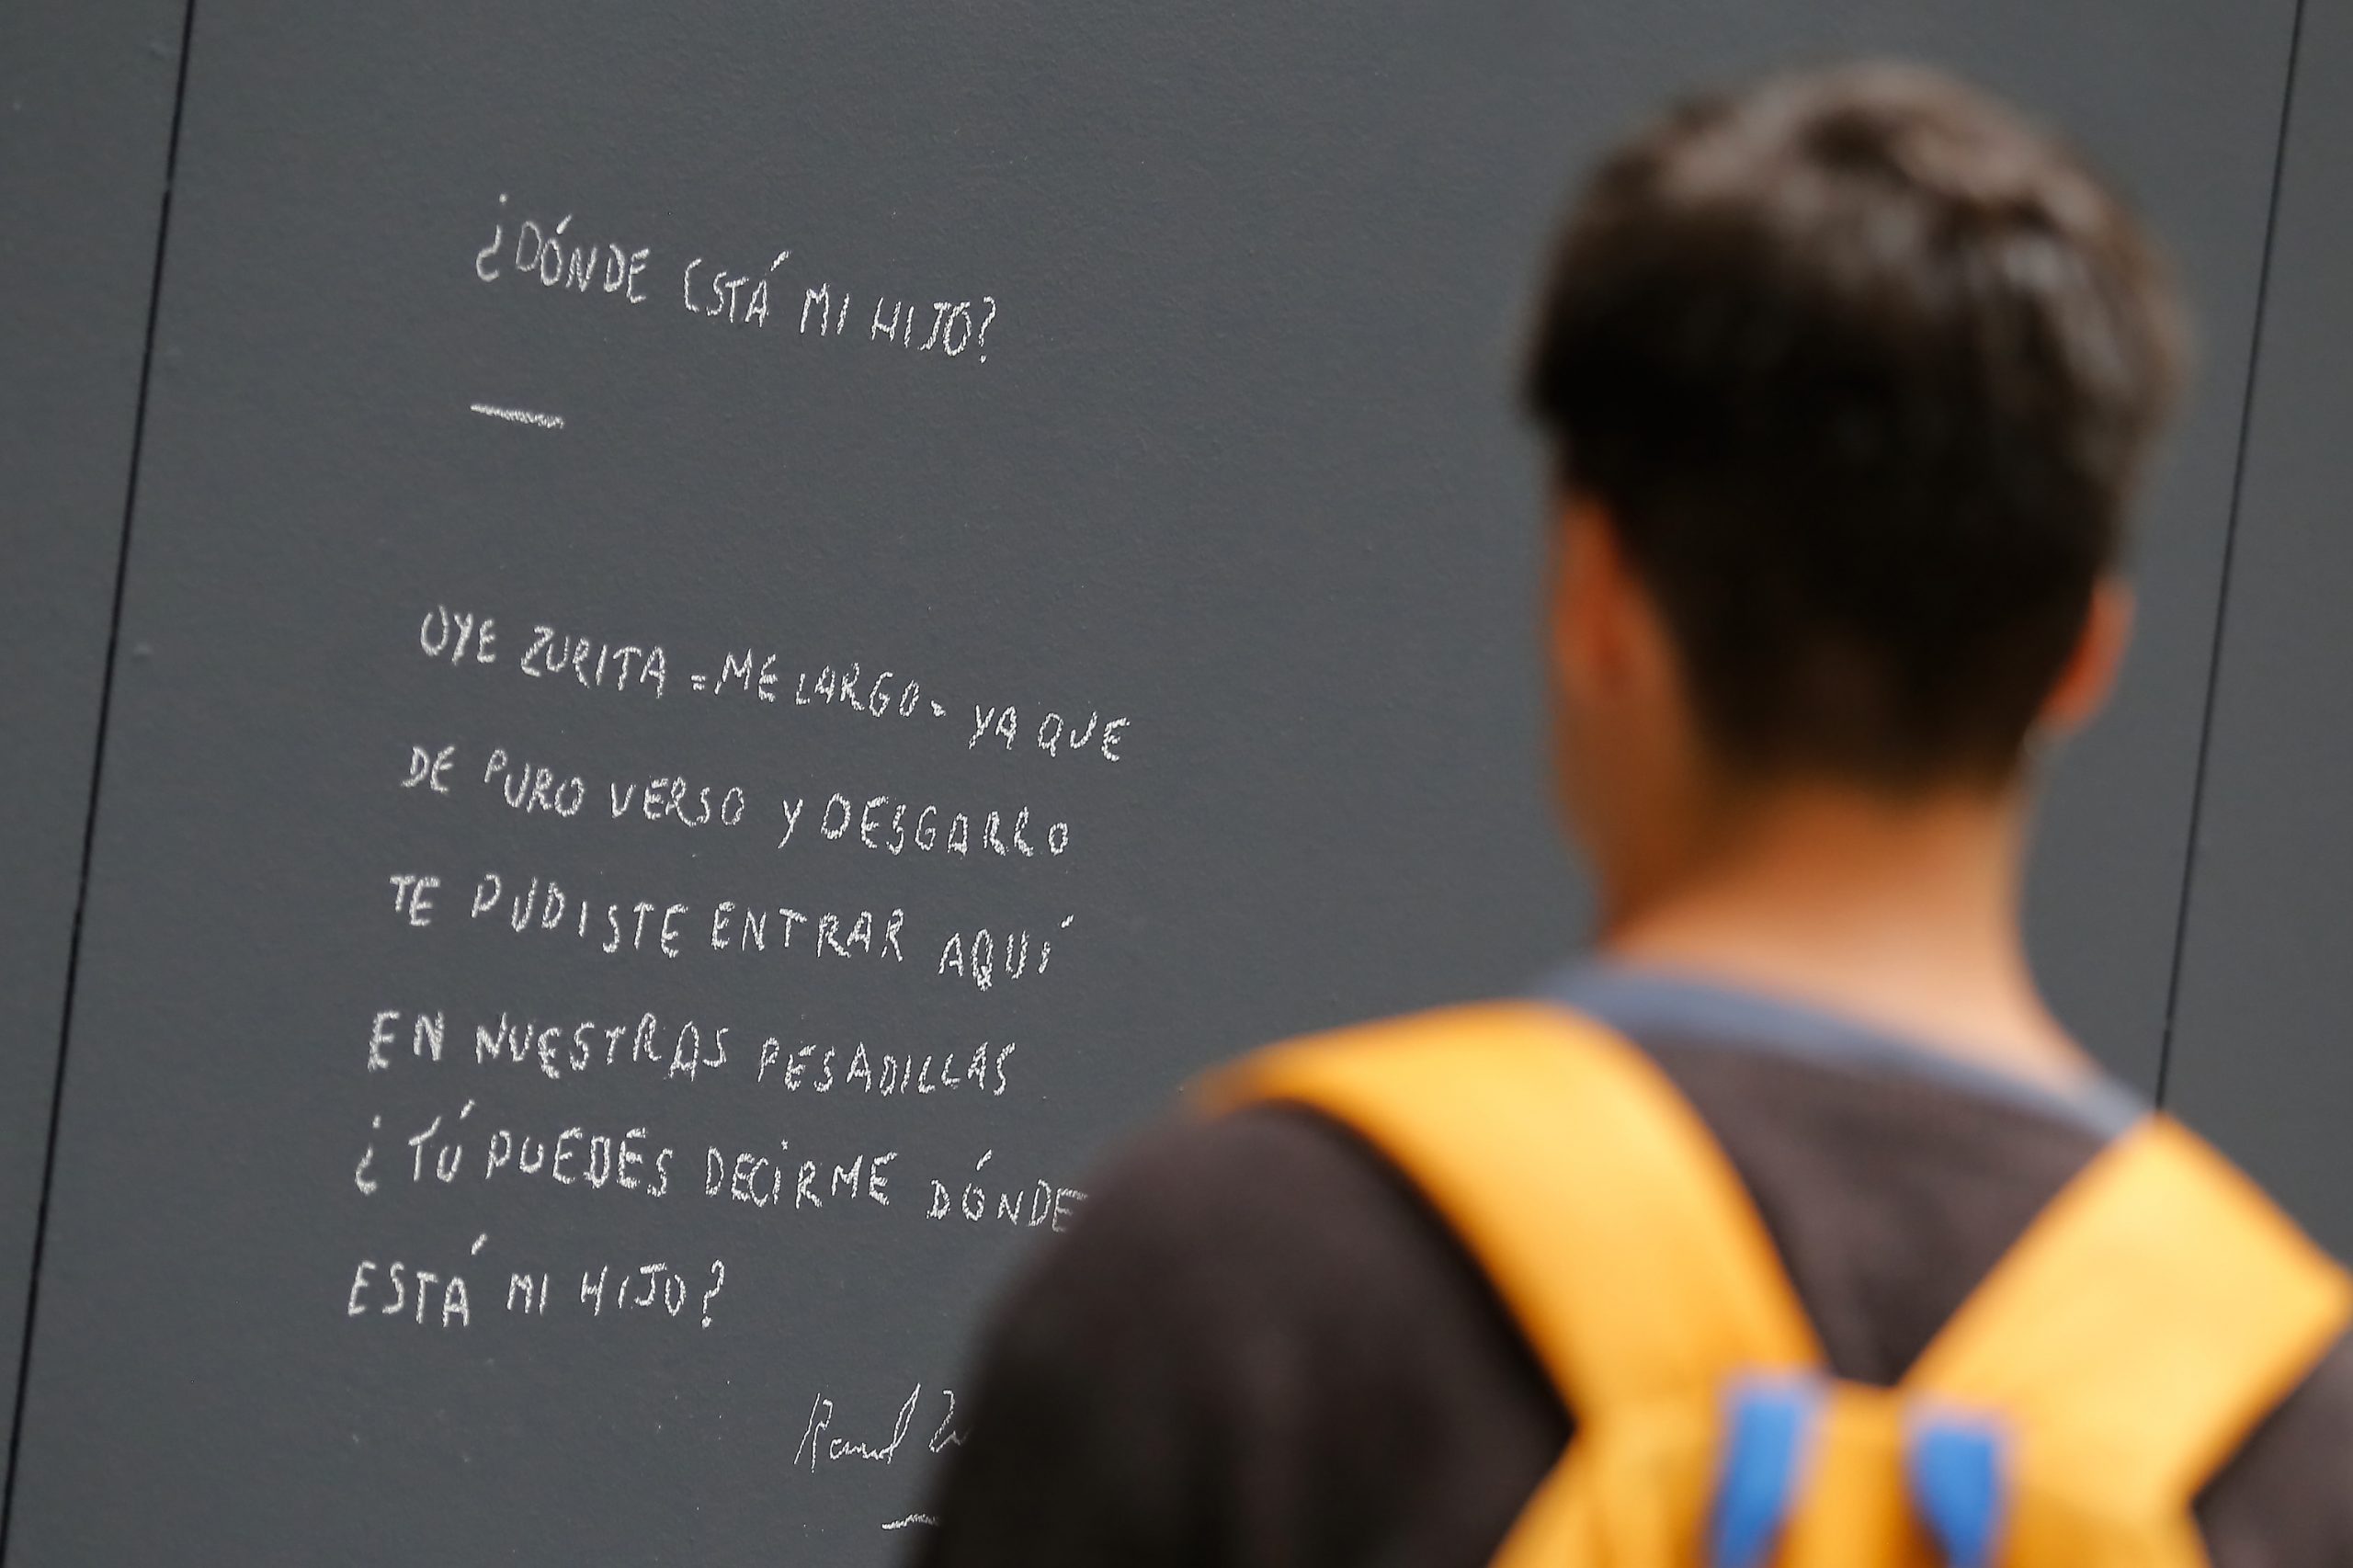 ¿DÓNDE ESTÁ MI HIJO?
OYE ZURITA =ME LARGO- YA QUE
DE PURO VERSO Y DESGARRO
TE PUDISTE ENTRAR AQUÍ
EN NUESTRAS PESADILLAS
¿TÚ PUEDES DECIRME DÓNDE
ESTÁ MI HIJO?
Raul